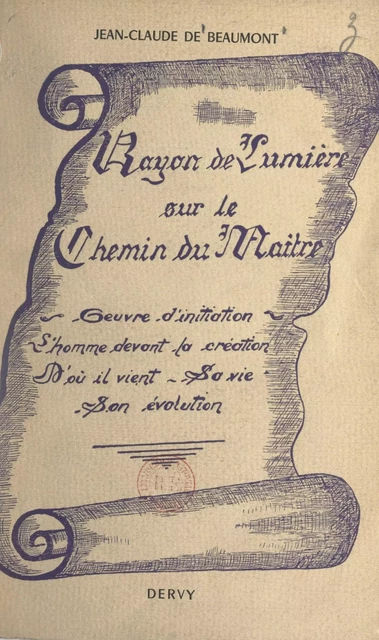 JEAN-CLAUDE DE BEAUMONT
3
Rayon de Lumière
sur le
Chemin du Maître
~ Oeuvre d'initiation ~
L'homme devant la création
D'où il vient ~ Sa vie
Son évolution
DERVY